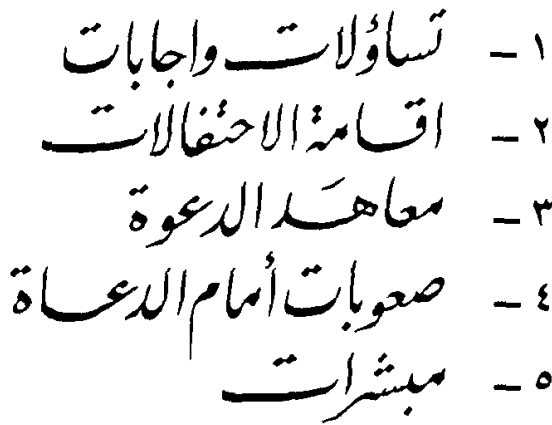 ١ - تساؤلات واجابات
٢ - اقامة الاحتفالات
٣ - معاهَد الدعوة
٤ - صعوبات أمام الدعاة
٥ - مبشرات